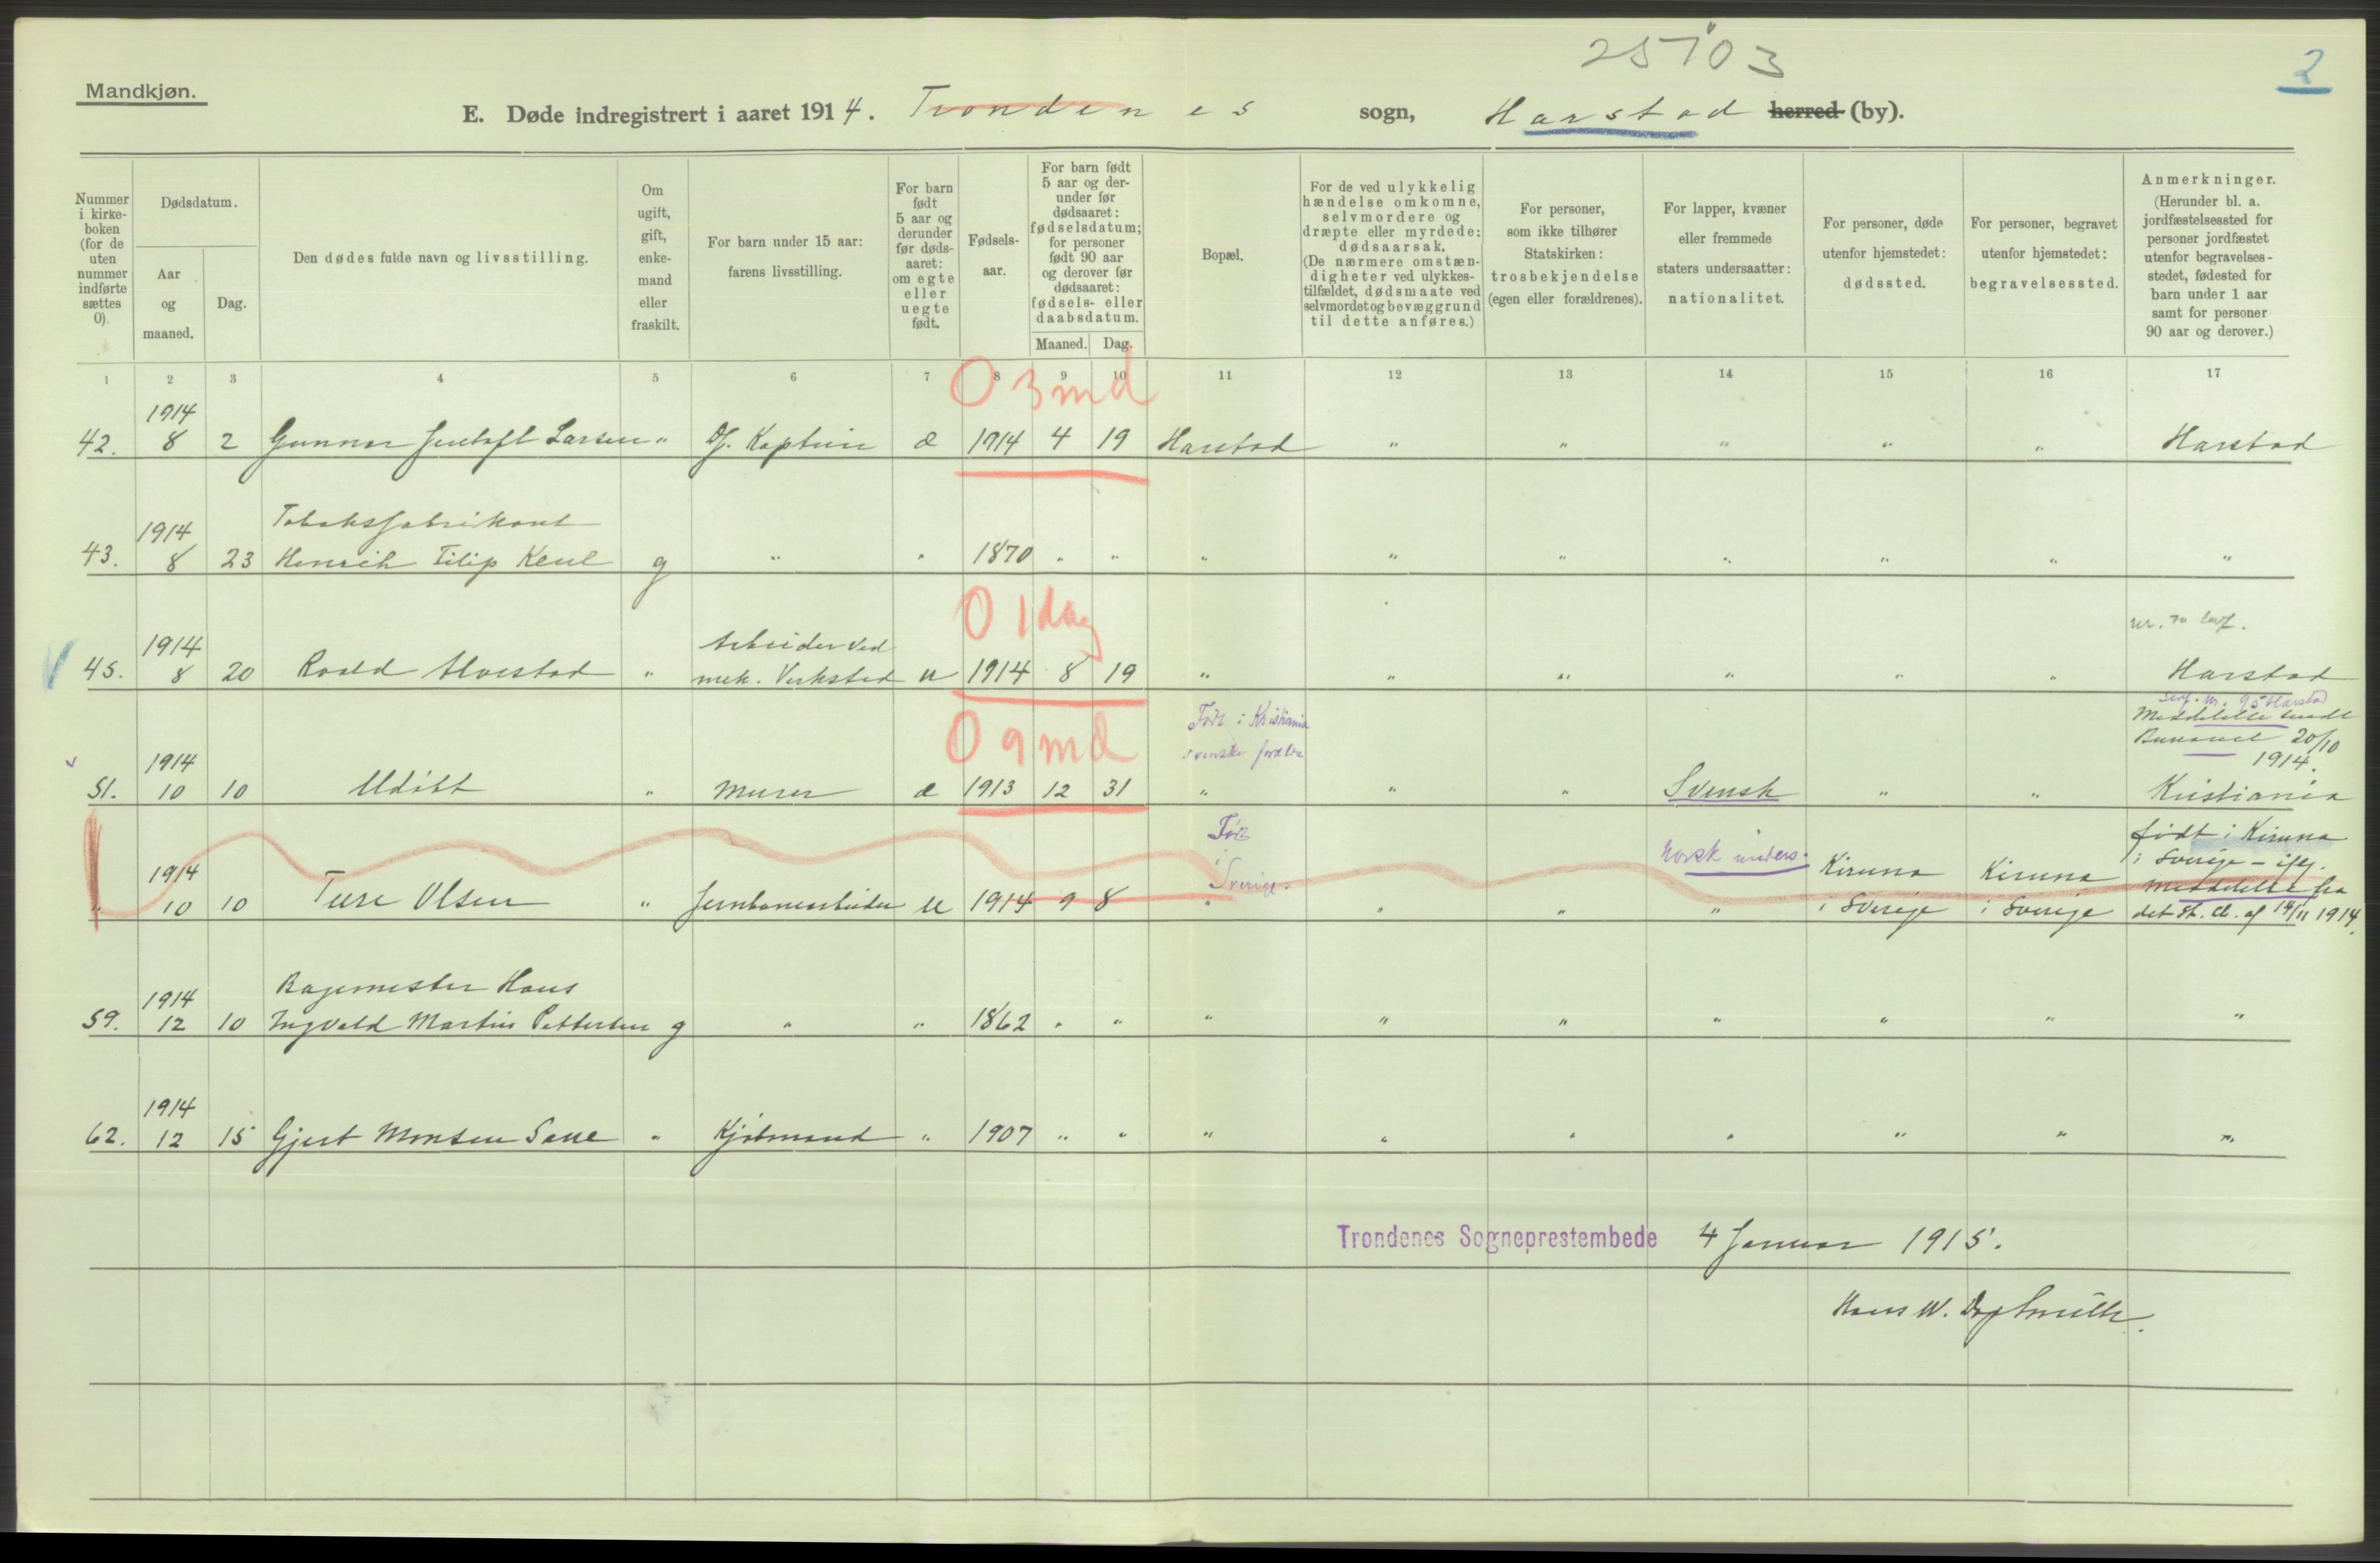 25103
2
Mandkjøn.
E. Døde indregistrert i aaret 1914. Trondenes sogn, Harstad herred (by).
Nummer i kirke-boken (for de uten nummer indførte sættes 0).
Dødsdatum.
Aar og maaned.
Dag.
Den dødes fulde navn og livsstilling.
Om ugift, gift, enke-mand eller fraskilt.
For barn under 15 aar: farens livsstilling.
For barn født 5 aar og derunder før døds-aaret: om egte eller uegte født.
Fødsels-aar.
For barn født 5 aar og der-under før dødsaaret: fødselsdatum; for personer født 90 aar og derover før dødsaaret: fødsels- eller daabsdatum.
Maaned. Dag.
Bopæl.
For de ved ulykkelig hændelse omkomne, selvmordere og dræpte eller myrdede: dødsaarsak. (De nærmere omstæn-digheter ved ulykkes-tilfældet, dødsmaate ved selvmordet og bevæggrund til dette anføres.)
For personer, som ikke tilhører Statskirken: trosbekjendelse (egen eller forældrenes).
For lapper, kvæner eller fremmede staters undersaatter: nationalitet.
For personer, døde utenfor hjemstedet: dødssted.
For personer, begravet utenfor hjemstedet: begravelsessted.
Anmerkninger. (Herunder bl. a. jordfæstelsessted for personer jordfæstet utenfor begravelses-stedet, fødested for barn under 1 aar samt for personer 90 aar og derover.)
1 2 3 4 5 6 7 8 9 10 11 12 13 14 15 16 17
0 3 md
1914
42. 8 2 Gunnar Larsen " Kaptein e 1914 4 19 Harstad " " " " " Harstad
Tobaksfabrikant
1914
43. 8 23 Henrik Filip Keul g " " 1870 " " " " " " " " "
0 1 dag
1914 Arbeider ved
45. 8 20 Roald Alvestad " mek. Verksted u 1914 8 19 " " " " " " Harstad
0 9 md
Født i Kristiania
svenske forældre
Meddelelse sendt
20/10
1914.
1914
51. 10 10 Udöbt " Murer e 1913 12 31 " " " Svensk " " Kristiania
Født
i
Sverige
norsk unders.
Kiruna
i Sverige
Kiruna
i Sverige
født i Kiruna
i Sverige – iflg.
meddelelse fra
det st. cb. af 14/11 1914.
1914
" 10 10 Ture Olsen " Jernbanearbeider u 1914 9 8 " " " "
Bagermester Hans
1914
59. 12 10 Ingvald Martin Pettersen g " " 1862 " " " " " " " " "
1914
62. 12 15 Gjert Monsen Saue " Kjøbmand " 1907 " " " " " " " " "
Trondenes Sogneprestembede 4 Januar 1915.
Hans W.